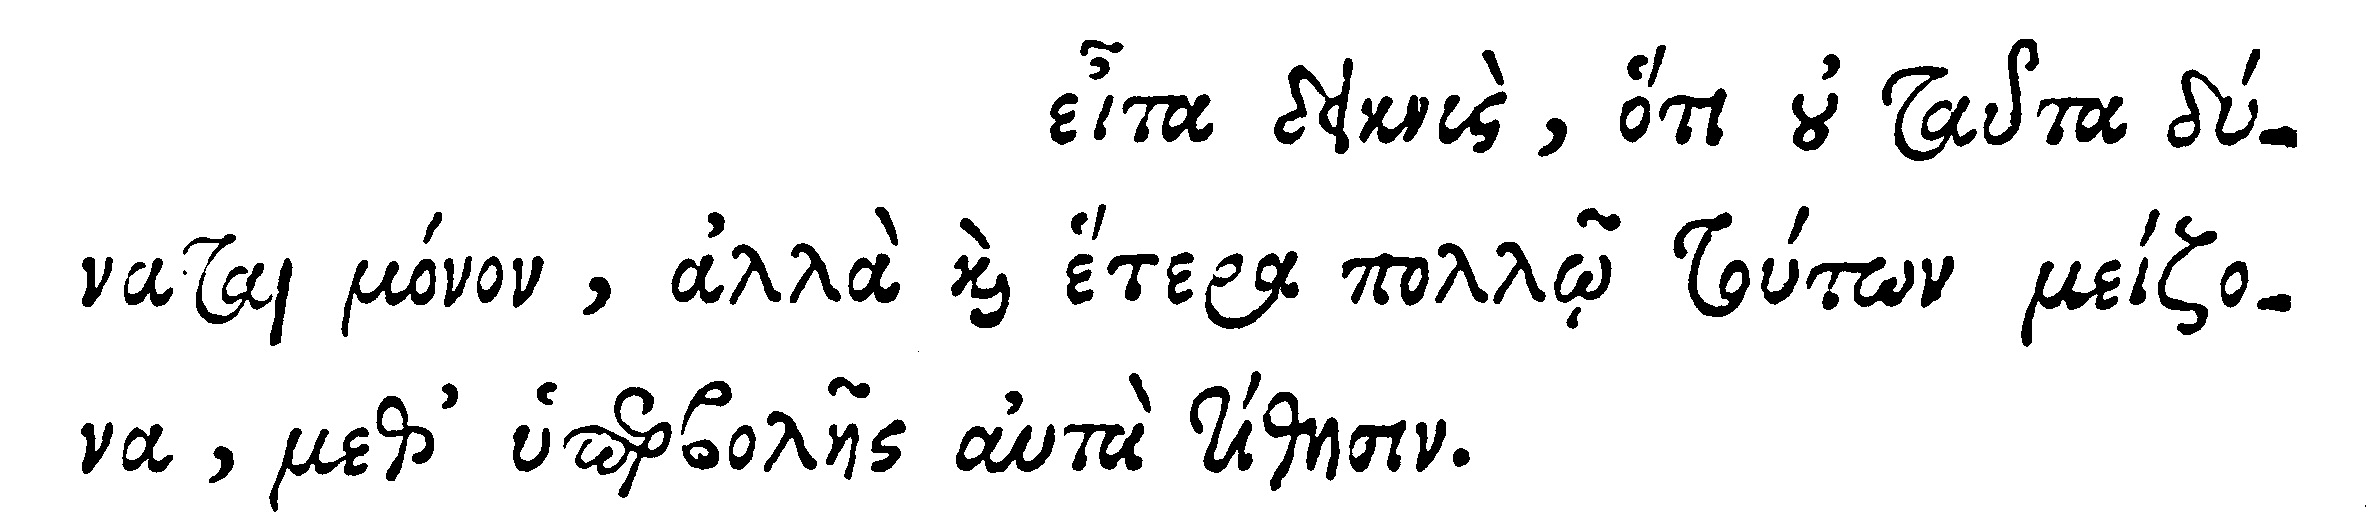 εἶτα δεικνὺς, ὅτι οὐ ταῦτα δύ-
ναται μόνον, ἀλλὰ καὶ ἕτερα πολλῷ τούτων μείζο-
να, μεθ’ ὑπερβολῆς αὐτὰ τίθησιν.